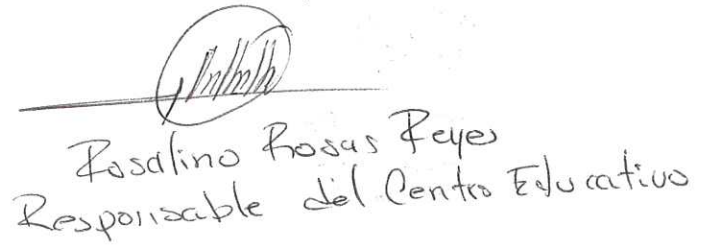 Rosalino Rosas Reyes
Responsable del Centro Educativo